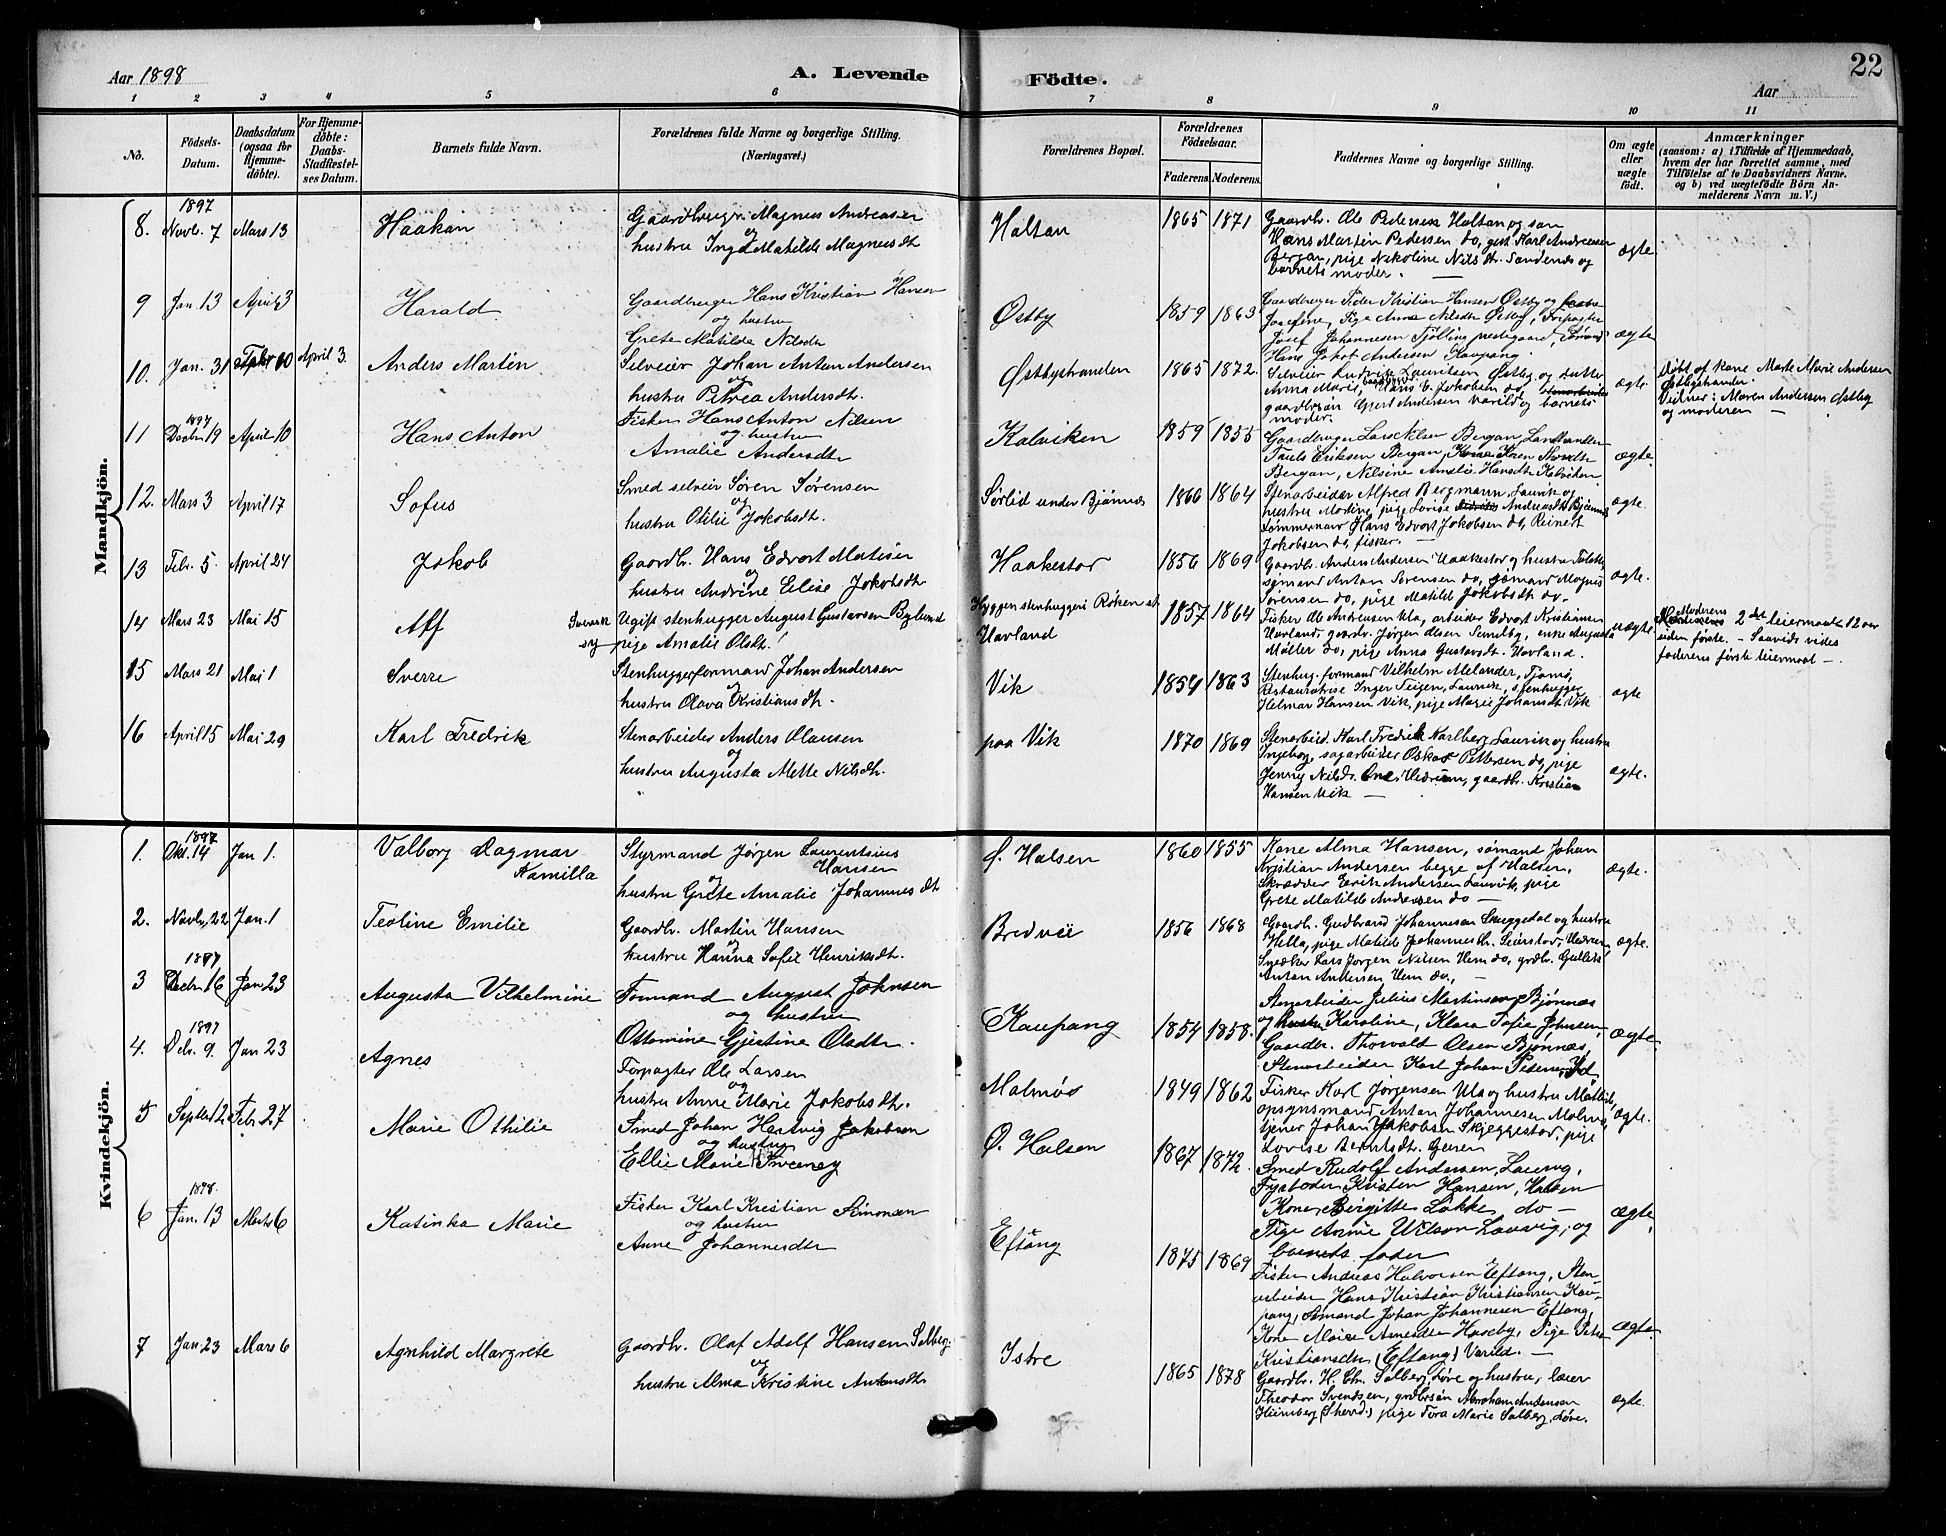 Aar 1898
A. Levende
Födte.
22
Aar
1 2 3 4 5 6 7 8 9 10 11
No.
Födsels-
Datum.
Daabsdatum
(ogsaa for
Hjemme-
döbte).
For Hjemme-
döbte:
Daabs-
Stadfæstel-
ses Datum.
Barnets fulde Navn.
Forældrenes fulde Navne og borgerlige Stilling.
(Næringsvei.)
Forældrenes Bopæl.
Forældrenes
Födselsaar.
Faderens. Moderens.
Faddernes Navne og borgerlige Stilling.
Om ægte
eller
uægte
födt.
Anmærkninger
(saasom: a) i Tilfælde af Hjemmedaab,
hvem der har forrettet samme, med
Tilföielse af to Daabsvidners Navne.
og b) ved uægtefödte Börn An-
melderens Navn m. V.)
Mandkjön.
1897
8. Novb. 7 Mars 13 Haakan
Gaardbruger Magnus Andreasen
og
hustru Inga Matilde Magnusdt
Holtan 1865 1871
Gaardb. Ole Pedersen Holtan og søn
Hans Martin Pedersen do, gut Karl Andreasen
Bergan, pige Nikoline Nilsdt. Sandenæs og
barnets moder. —
ægte.
9 Jan 13 April 3 Harald
Gaardbruger Hans Kristian Hansen
og hustru
Grete Matilde Nilsdt
Østby 1859 1863
Gaardbruger Peder Kristian Hansen Østby og
Josefine, Pige Anna Nilsdt Østby, Forpagter
Josef Johannesen Tjølling prestegaard, Sømand
Hans Jakob Andersen Kaupang.
ægte
10. Jan. 31 Febr 10 April 3. Anders Martin
Selveier Johan Anton Andersen
og
hustru Petrea Andersdt.
Østbystranden 1865 1872.
Selveier Ludvig Lauritsen Østby og datter
Anna Marie, Hans E. Jakobsen do,
gaardbrsøn Gjert Andersen Varild og barnets
moder.
ægte.
døbt af kone Marte Marie Andersen
Østbystranden.
Vidner: Maren Andersen Østby
og moderen —
1897
11 Decbr 19 April 10 Hans Anton
Fisker Hans Anton Nilsen
og hustru
Amalie Andersdtr
Kalviken 1859 1855
Gaardbruger Lars Nilsen Bergan, Landhandler
Pauls Eriksen Bergan, Kone
Bergan, Nilsine Amalie Hansdt Kalviken.
ægte.
12. Mars 3 April 17 Sofus
Smed selveir Søren Sørensen
og
hustru Otilie Jakobsdt.
Sørlid under Bjønnes 1860 1864
Stenarbeider Alfred Bergmann, Laurvik og
hustru Martine, pige Lovise Andreasdt Bjønnes
tømmermand Hans Edvart Jakobsen do, Reinert
Jakobsen do, fisker. —
ægte.
13 Febr. 5. April 24 Jakob
Gaardb. Hans Edvart Matisen
og
hustru Andrine Elise Jakobsdt
Haakestad 1856 1869
Gaardb. Anders Andersen Haakestad og hustru
sømand Anton Sørensen do, sømand Magnus
Sørensen do, pige Matild Jakobsdt do —
ægte.
14 Mars 23 Mai 15 Alf
Ugift stenhugger August Gustavsen Bylund
pige Amalie Olsdt.
Hyggen stenhuggeri Røken st.
Havland 1857 1864
Fisker Ole Andreasen Ula, arbeider Edvart Kristiansen
Havland, gaardbr. Jørgen Olsen Sendby, enke Augusta
Møller do, pige Anna Gustavsdt. Havland.
uægte
Moderens 2det leiermaal 12 aar
siden første. — Saavidt vides
faderens første leiermaal —.
15 Mars 21 Mai 1 Sverre
Stenhuggerformand Johan Andersen
og
hustru Olava Kristiansdt.
Vik 1854 1863
Stenhug. formand Vilhelm Melander, Tjømø,
Restauratrise Inger Teigen, Laurvik, stenhugger
Helmar Hansen Vik, pige Marie Johansdt Vik
ægte
16 April 5 Mai 29 Karl Fredrik
Stenarbeider Anders Olausen
og
hustru Augusta Mette Nilsdt.
paa Vik 1870 1869
Stenarbeid. Karl Fredrik Karlberg Laurvik og hustru
Ingeborg, sagarbeider Oskar Pettersen do, pige
Jenny Nilsdt. Hedrum, gaardb. Kristian
Hansen Vik —
ægte.
Kvindekjön.
1897
1. Okt. 14 Jan 1. Valborg Dagmar
Kamilla
Styrmand Jørgen Laurentsius
Hansen
og
hustru Grete Amalie Johannesdt
Ø. Halsen 1860 1855
Kone Alma Hansen, sømand Johan
Kristian Andersen begge af Halsen,
Skrædder Erik Andersen Laurvik, pige
Grete Matilde Andresen do —
ægte.
2. Novbr. 22 Jan. 1 Teoline Emilie
Gaardb. Martin Hansen
og
hustru Hanna Sofie Henriksdt.
Bredvei 1856 1868
Gaardb. Gudbrand Johannesen Skuggedal og hustru
Hella, pige Matilde Johannesdt. Seierstad, Hedrum,
Snedker Lars Jørgen Nilsen Hem do, grdb. Gullik
Anton Andersen Hem do. —
ægte.
1897
3 Decbr 16 Jan 23 Augusta Vilhelmine
Formand August Johnsen
og hustru
Ottomine Gjertine Olsdtr.
Kaupang 1854 1858.
Stenarbeider Julius Martinsen Bjønnes
og hustru Karoline, Klara Sofie Johnsen,
Gaardbr. Thorvald Olsen Bjønnes,
Stenarbeider Karl Johan Pedersen,
ægte
1897
4. Dcbr. 9. Jan 23 Agnes
Forpagter Ole Larsen
og
hustru Anne Marie Jakobsdt.
Malmøe 1849 1862
Fisker Karl Jørgensen Ula og hustru Matilde,
opsynsmand Anton Johannesen Malmø,
tjener Johan Jakobsen Skjeggestad, pige
Lovise Berntsdt. Geren
ægte.
5 Septbr 12 Febr 27 Marie Othilie
Smed Johan Hartvig Jakobsen
og hustru
Ellie Marie
Ø. Halsen 1867 1872.
Smed Rudolf Andersen, Laurvig,
Fyrbøder Kristen Hansen, Halsen
Kone Birgitte Løkke do —
Pige Annie Wilson Laurvig, og
barnets fader
ægte
1898.
6 Jan. 13 Marts 6 Katinka Marie
Fisker Karl Kristian Simonsen
og hustru
Anne Johannesdtr
Eftang 1875 1869
Fisker Andreas Halvorsen Eftang, Sten-
arbeider Hans Kristian Kristiansen Kau-
pang, Sømand Johan Johannesen Eftang,
Kone Maise Amundsen Haseby, Pige Petra
Kristiansdtr (Eftang) Varild. —
ægte
7 Jan 23 Mars 6 Agnhild Margrete
Gaardb. Olaf Adolf Hansen Solberg
og
hustru Alma Kristine Antonsdt.
Istre 1865 1878
Gaardb. H. Chr. Solberg Løve og hustru, lærer
Theodor Svendsen, grdbrsøn Abraham Andersen
Hiemberg (Sherrd.) pige Tora Marie Solberg, Løve.
ægte.